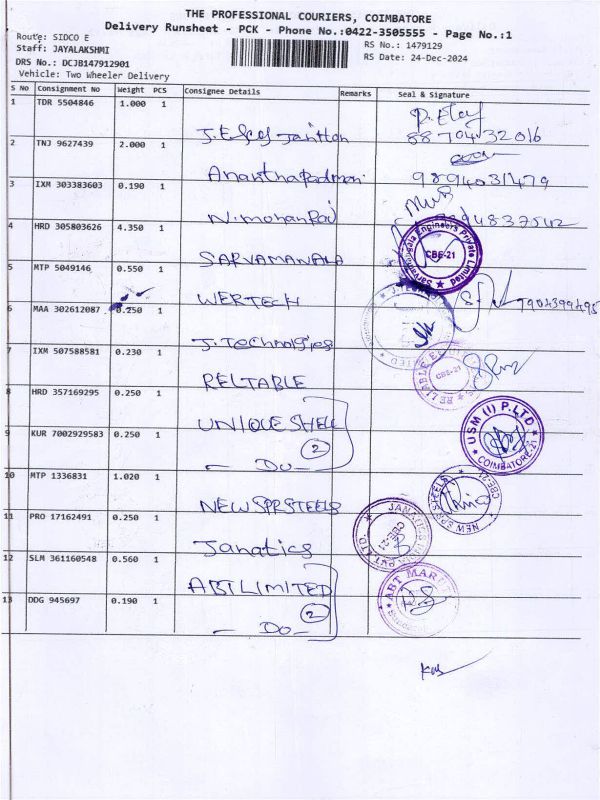 THE PROFESSIONAL COURIERS, COIMBATORE
Delivery Runsheet - PCK - Phone No.:0422-3505555 - Page No.:1
Route: SIDCO E
RS No.: 1479129
Staff: JAYALAKSHMI
RS Date: 24-Dec-2024
DRS No.: DCJB147912901
Vehicle: Two Wheeler Delivery
S No Consignment No Weight PCS Consignee Details Remarks Seal & Signature
1 TDR 5504846 1.000 1
8870432016
2 TNJ 9627439 2.000 1
9894031479
3 IXM 303383603 0.190 1 N. mohanRaj
4 HRD 305803626 4.350 1 SARVAMANALA
Engineers Private Limited CBE-21
5 MTP 5049146 0.550 1 WERTECH
7904399495
6 MAA 302612087 0.250 1 J. Technologies
7 IXM 507588581 0.230 1 RELTABLE
RELIABLE CBE-21
8 HRD 357169295 0.250 1 UNIQUE SHELL
USM (I) P.LTD COIMBATORE-21
9 KUR 7002929583 0.250 1 - Do - 2
10 MTP 1336831 1.020 1 NEWSPRSTEELS
NEW SPR STEELS CBE-21
11 PRO 17162491 0.250 1 Janatics
JANATICS INDIA PVT.LTD. CBE-21
12 SLM 361160548 0.560 1 ABTLIMITED
ABT MARUTI
13 DDG 945697 0.190 1 - Do - 2